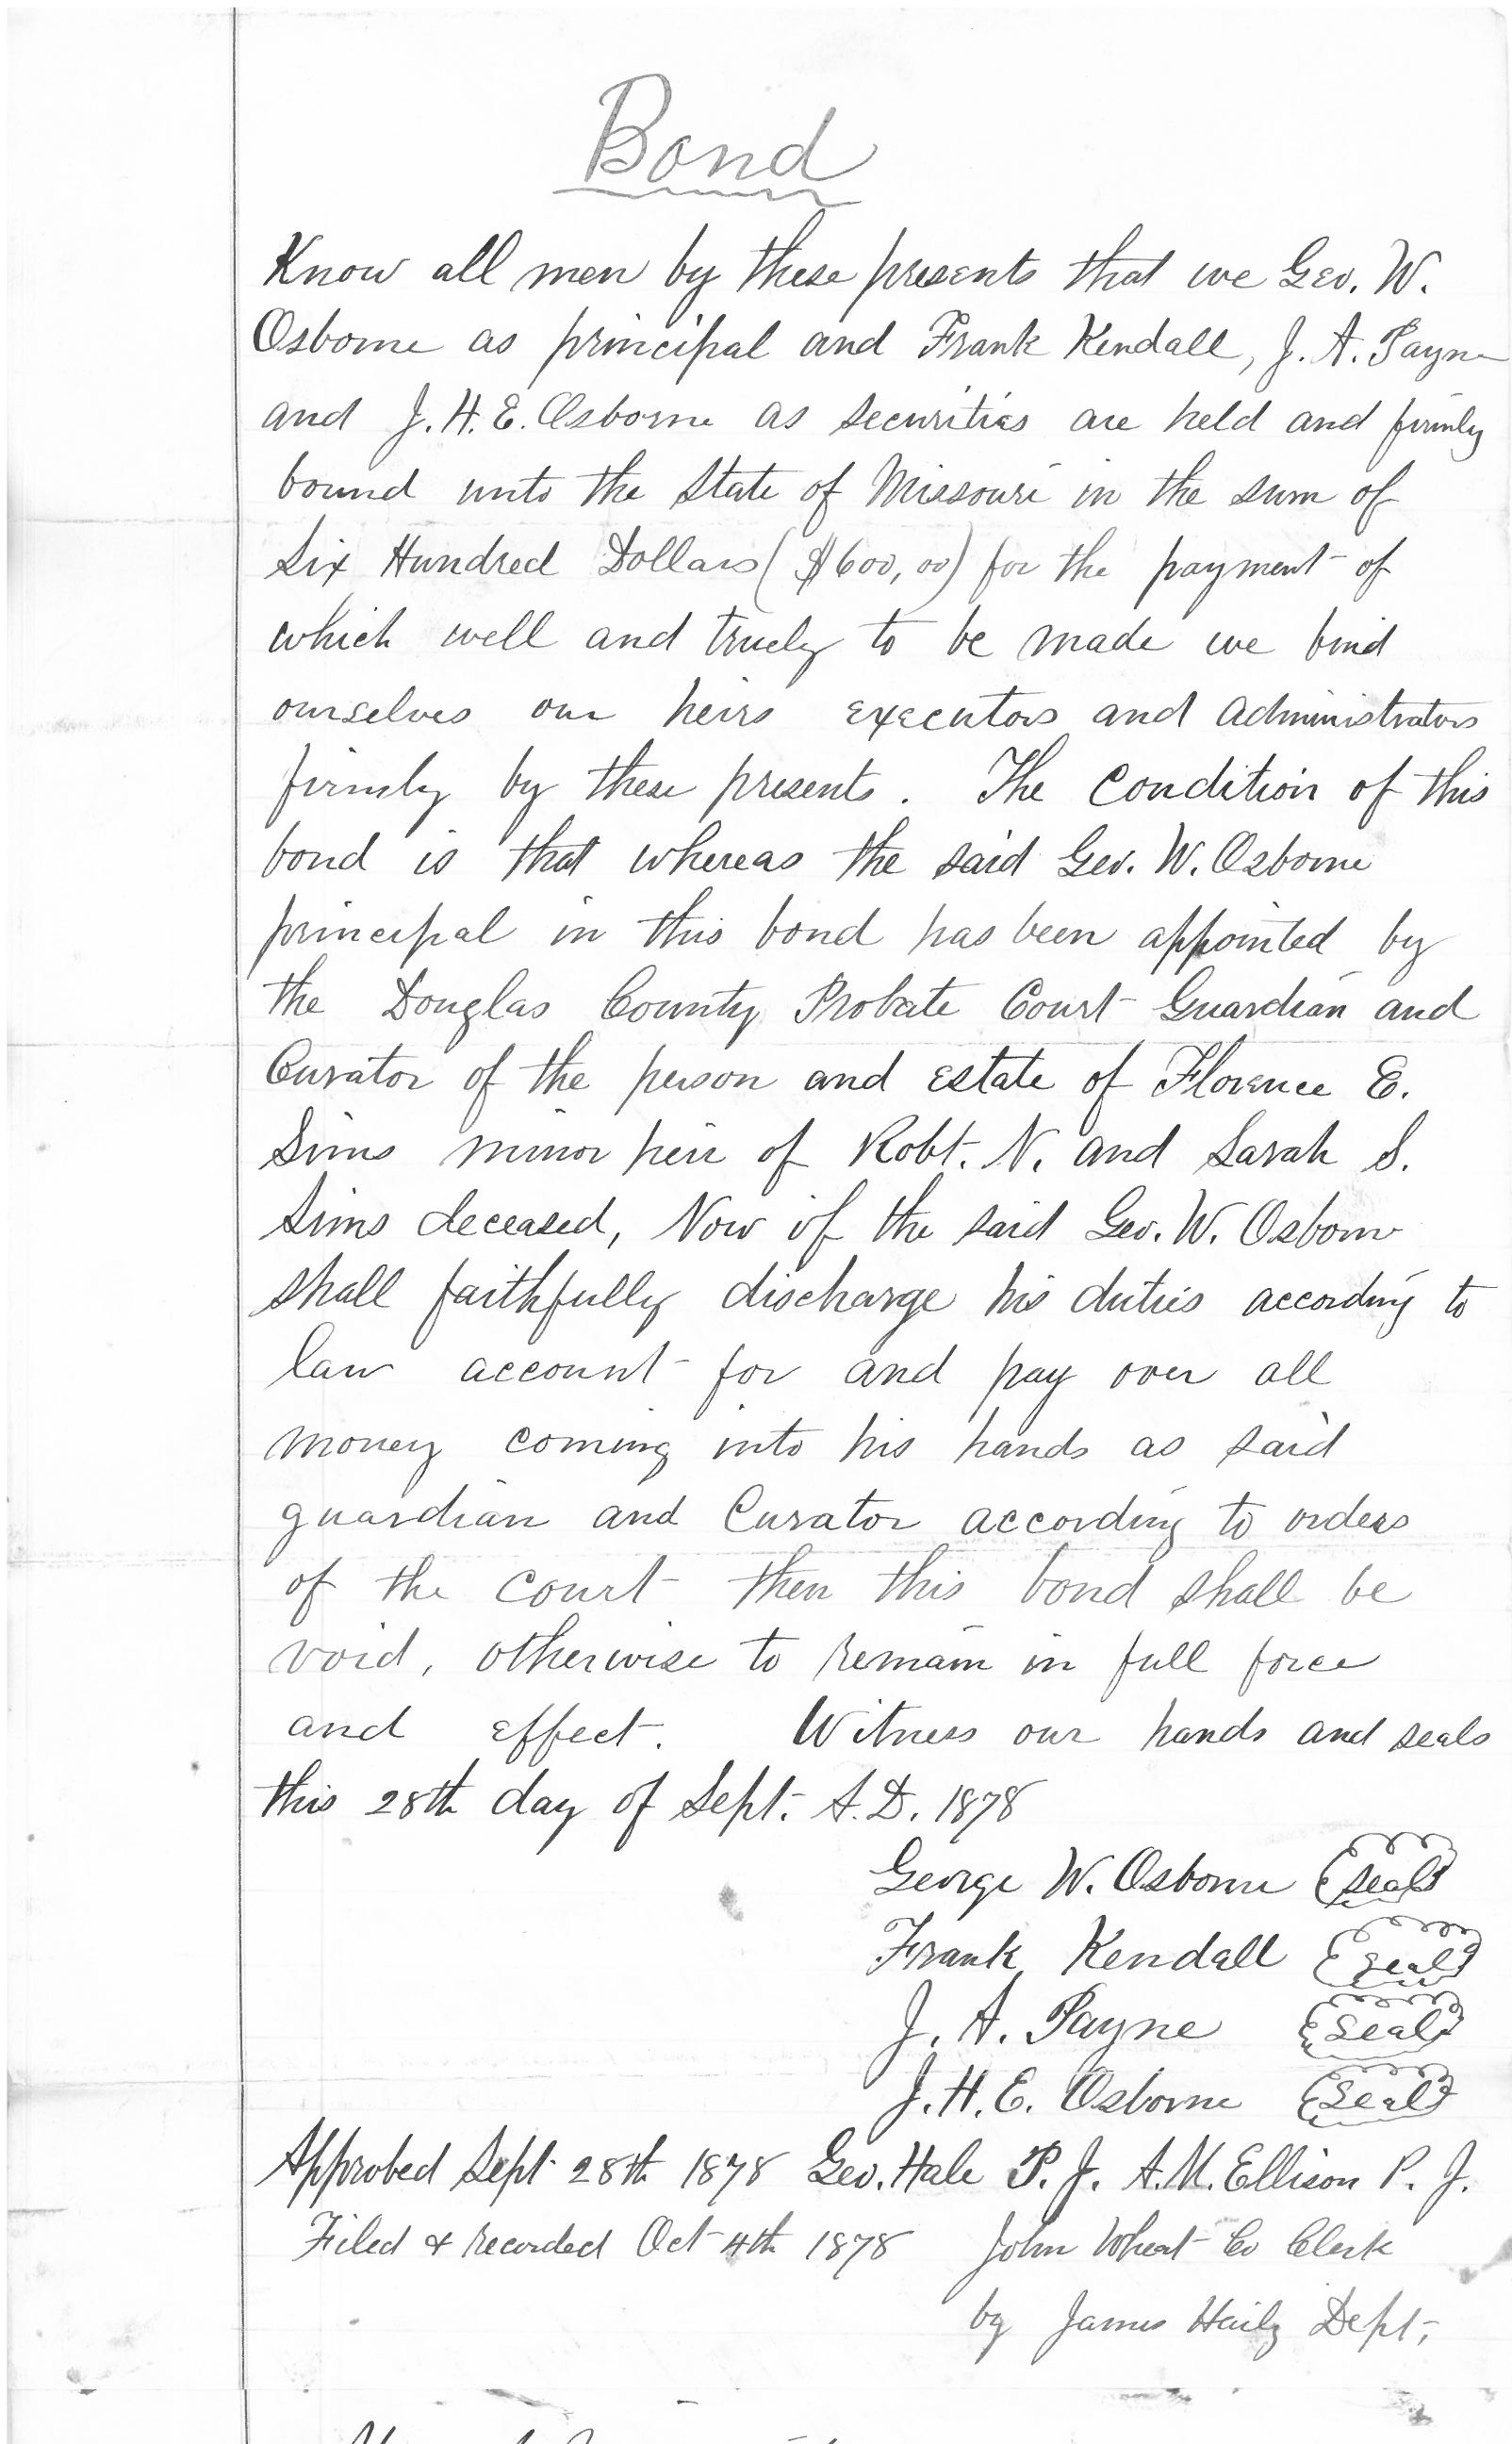 Bond
Know all men by these presents that we Geo. W.
Osborne as principal and Frank Kendall, J. A. Payne
and J. H. E. Osborne as securities are held and firmly
bound unto the State of Missouri in the sum of
Six Hundred Dollars ($600,00) for the payment of
which well and truely to be made we bind
ourselves our heirs executors and administrators
firmly by these presents. The condition of this
bond is that whereas the said Geo. W. Osborne
principal in this bond has been appointed by
the Douglas County Probate Court Guardian and
Curator of the person and estate of Florence E.
Sims minor heir of Robt. N. and Sarah S.
Sims deceased, Now if the said Geo. W. Osborne
shall faithfully discharge his duties according to
law account for and pay over all
money coming into his hands as said
guardian and Curator according to orders
of the court then this bond shall be
void, otherwise to remain in full force
and effect. Witness our hands and seals
this 28th day of Sept. A.D. 1878
George W. Osborne Seal
Frank Kendall Seal
J. A. Payne Seal
J. H. E. Osborne Seal
Approved Sept 28th 1878 Geo. Hale P. J. A. M. Ellison P. J.
Filed & recorded Oct 4th 1878 John Wheat Co Clerk
by James Haily Dept.